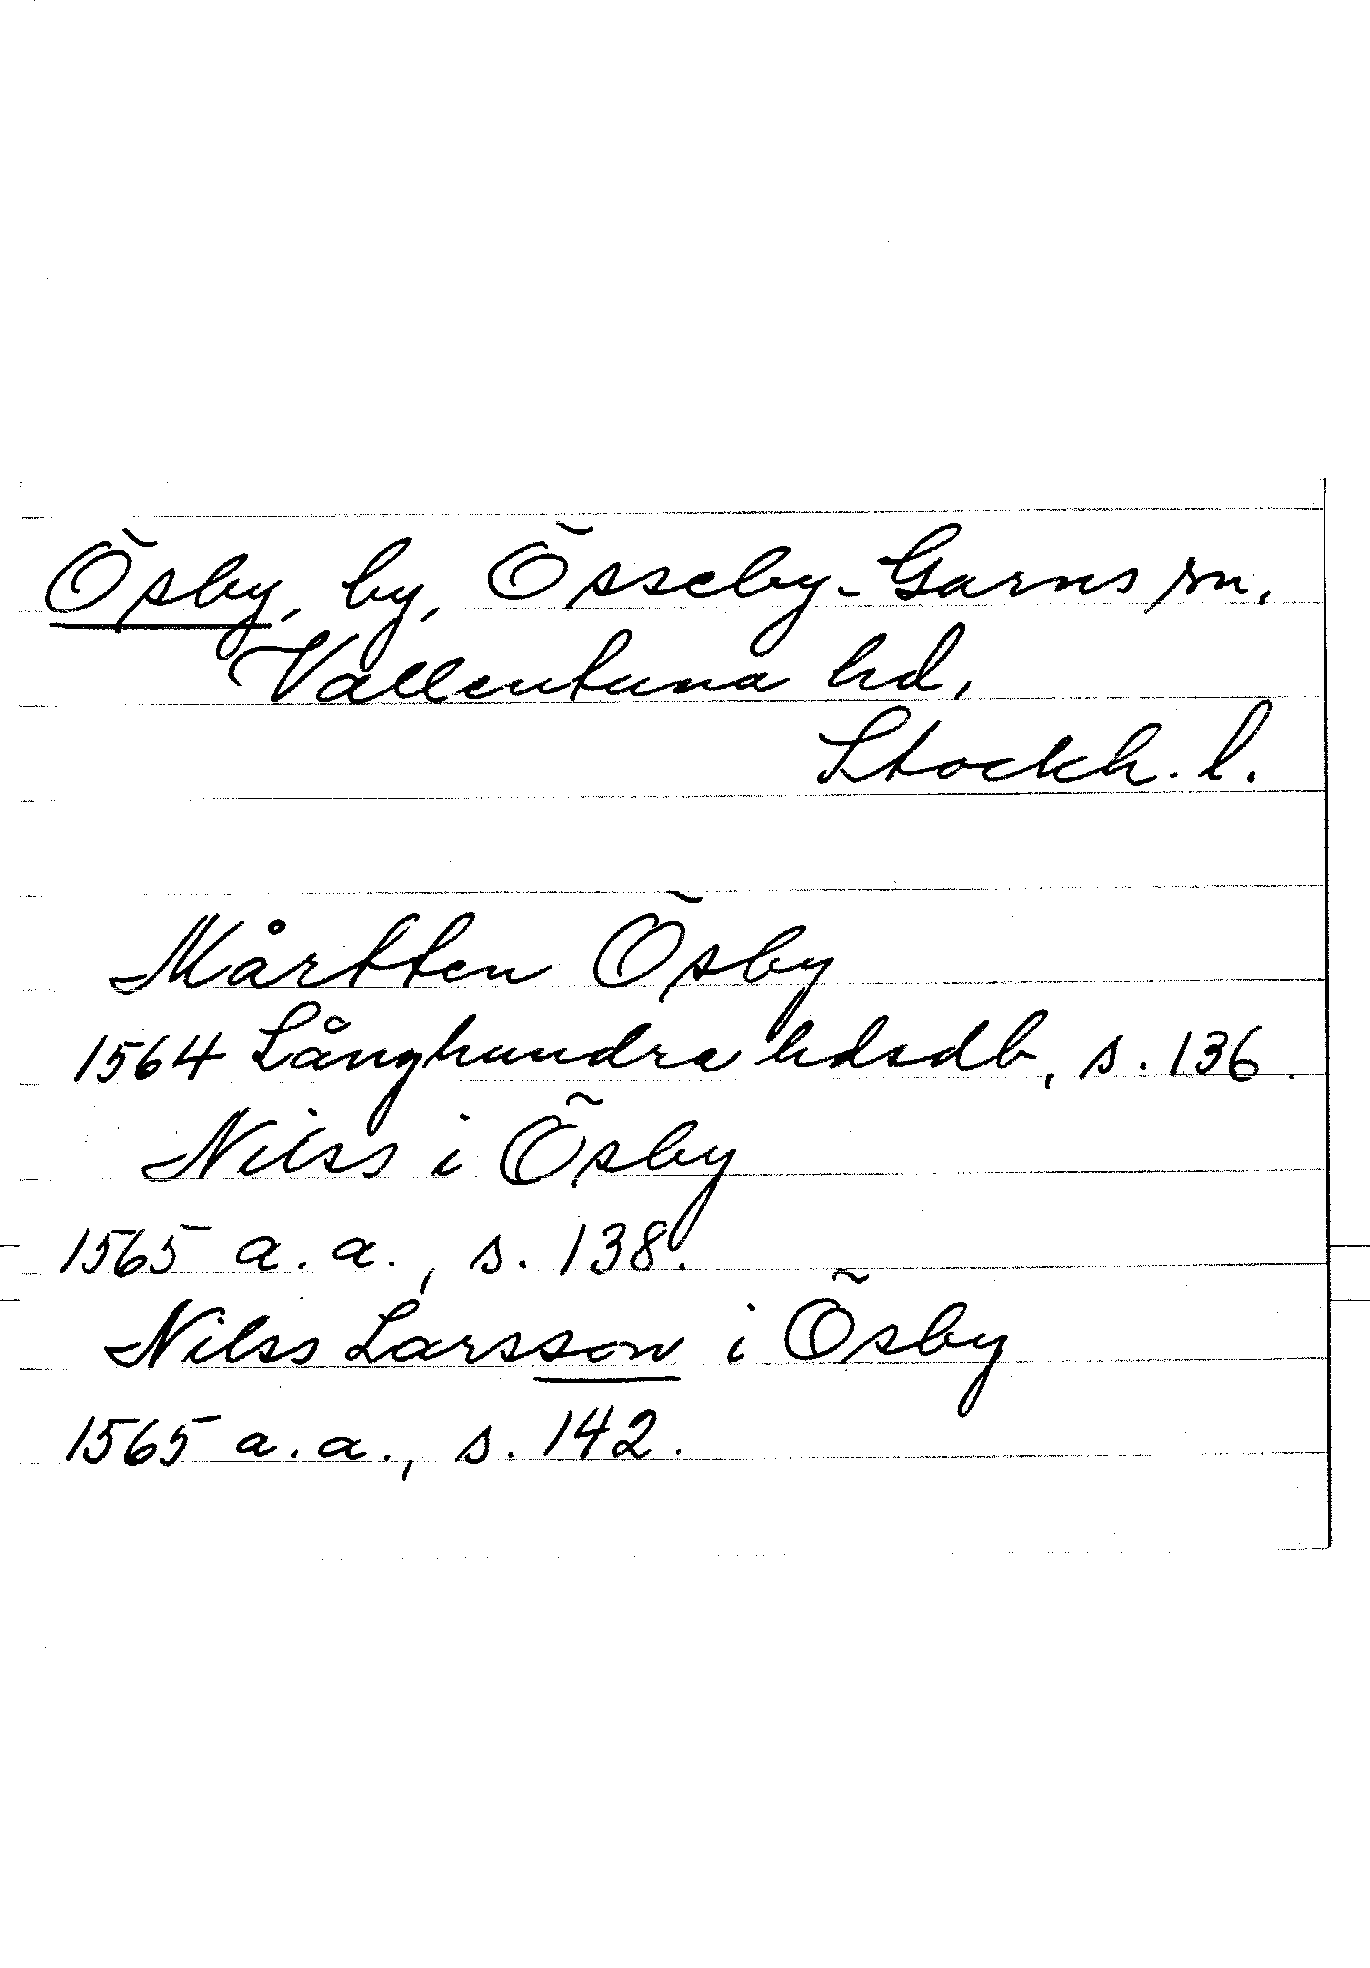 Ösby, by, Össeby-Garns sn,
Vallentuna hd,
Stockh. l.
Mårtten Ösby
1564 Långhundra hdsdb, s. 136.
Nilss i Ösby
1565 a. a., s. 138.
Nilss Larsson i Ösby
1565 a. a., s. 142.